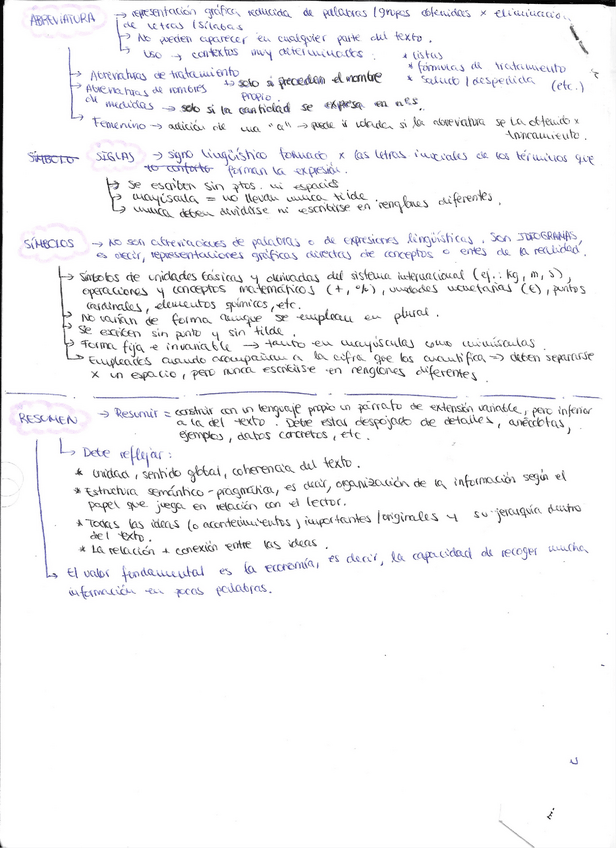 ABREVIATURA → representación gráfica reducida de palabras/grupos obtenidas x eliminación
de letras/sílabas
→ No pueden aparecer en cualquier parte del texto.
→ Uso → contextos muy determinados: * listas
* fórmulas de tratamiento
* saludo/despedida (etc.)
→ Abreviaturas de tratamiento
→ Abreviaturas de nombres → solo si preceden al nombre propio
de medidas → solo si la cantidad se expresa en nos.
→ Femenino → adición de una "a" → puede ir volada si la abreviatura se ha obtenido x
truncamiento.
SÍMBOLO SIGLAS → signo lingüístico formado x las letras iniciales de los términos que
forman la expresión.
→ Se escriben sin ptos. ni espacios
→ mayúscula = no llevan nunca tilde
→ nunca deben dividirse ni escribirse en renglones diferentes.
SÍMBOLOS → No son abreviaciones de palabras o de expresiones lingüísticas. Son IDEOGRAMAS,
es decir, representaciones gráficas directas de conceptos o entes de la realidad.
→ Símbolos de unidades básicas y derivadas del sistema internacional (ej.: kg, m, s),
operaciones y conceptos matemáticos (+, %), unidades monetarias (€), puntos
cardinales, elementos químicos, etc.
→ No varían de forma aunque se emplean en plural.
→ Se escriben sin punto y sin tilde.
→ Forma fija e invariable → tanto en mayúsculas como minúsculas.
→ Empleados cuando acompañan a la cifra que los cuantifica → deben separarse
x un espacio, pero nunca escribirse en renglones diferentes.
RESUMEN → Resumir = construir con un lenguaje propio un párrafo de extensión variable, pero inferior
a la del texto. Debe estar despojado de detalles, anécdotas,
ejemplos, datos concretos, etc.
→ Debe reflejar:
* Unidad, sentido global, coherencia del texto.
* Estructura semántico-pragmática, es decir, organización de la información según el
papel que juega en relación con el lector.
* Todas las ideas (o acontecimientos) importantes/originales y su jerarquía dentro
del texto.
* La relación + conexión entre las ideas.
→ El valor fundamental es la economía, es decir, la capacidad de recoger mucha
información en pocas palabras.